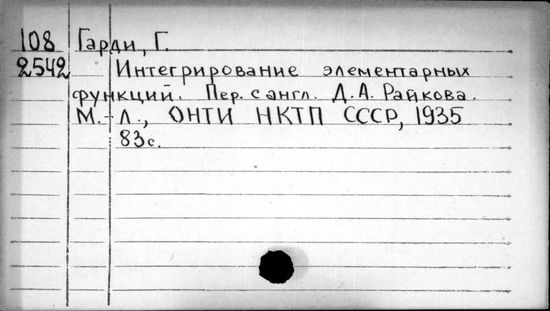 108 Гарди, Г.
2542 Интегрирование элементарных
функций. Пер. с англ. Д. А. Райкова.
М.-Л., ОНТИ НКТП СССР, 1935
83с.